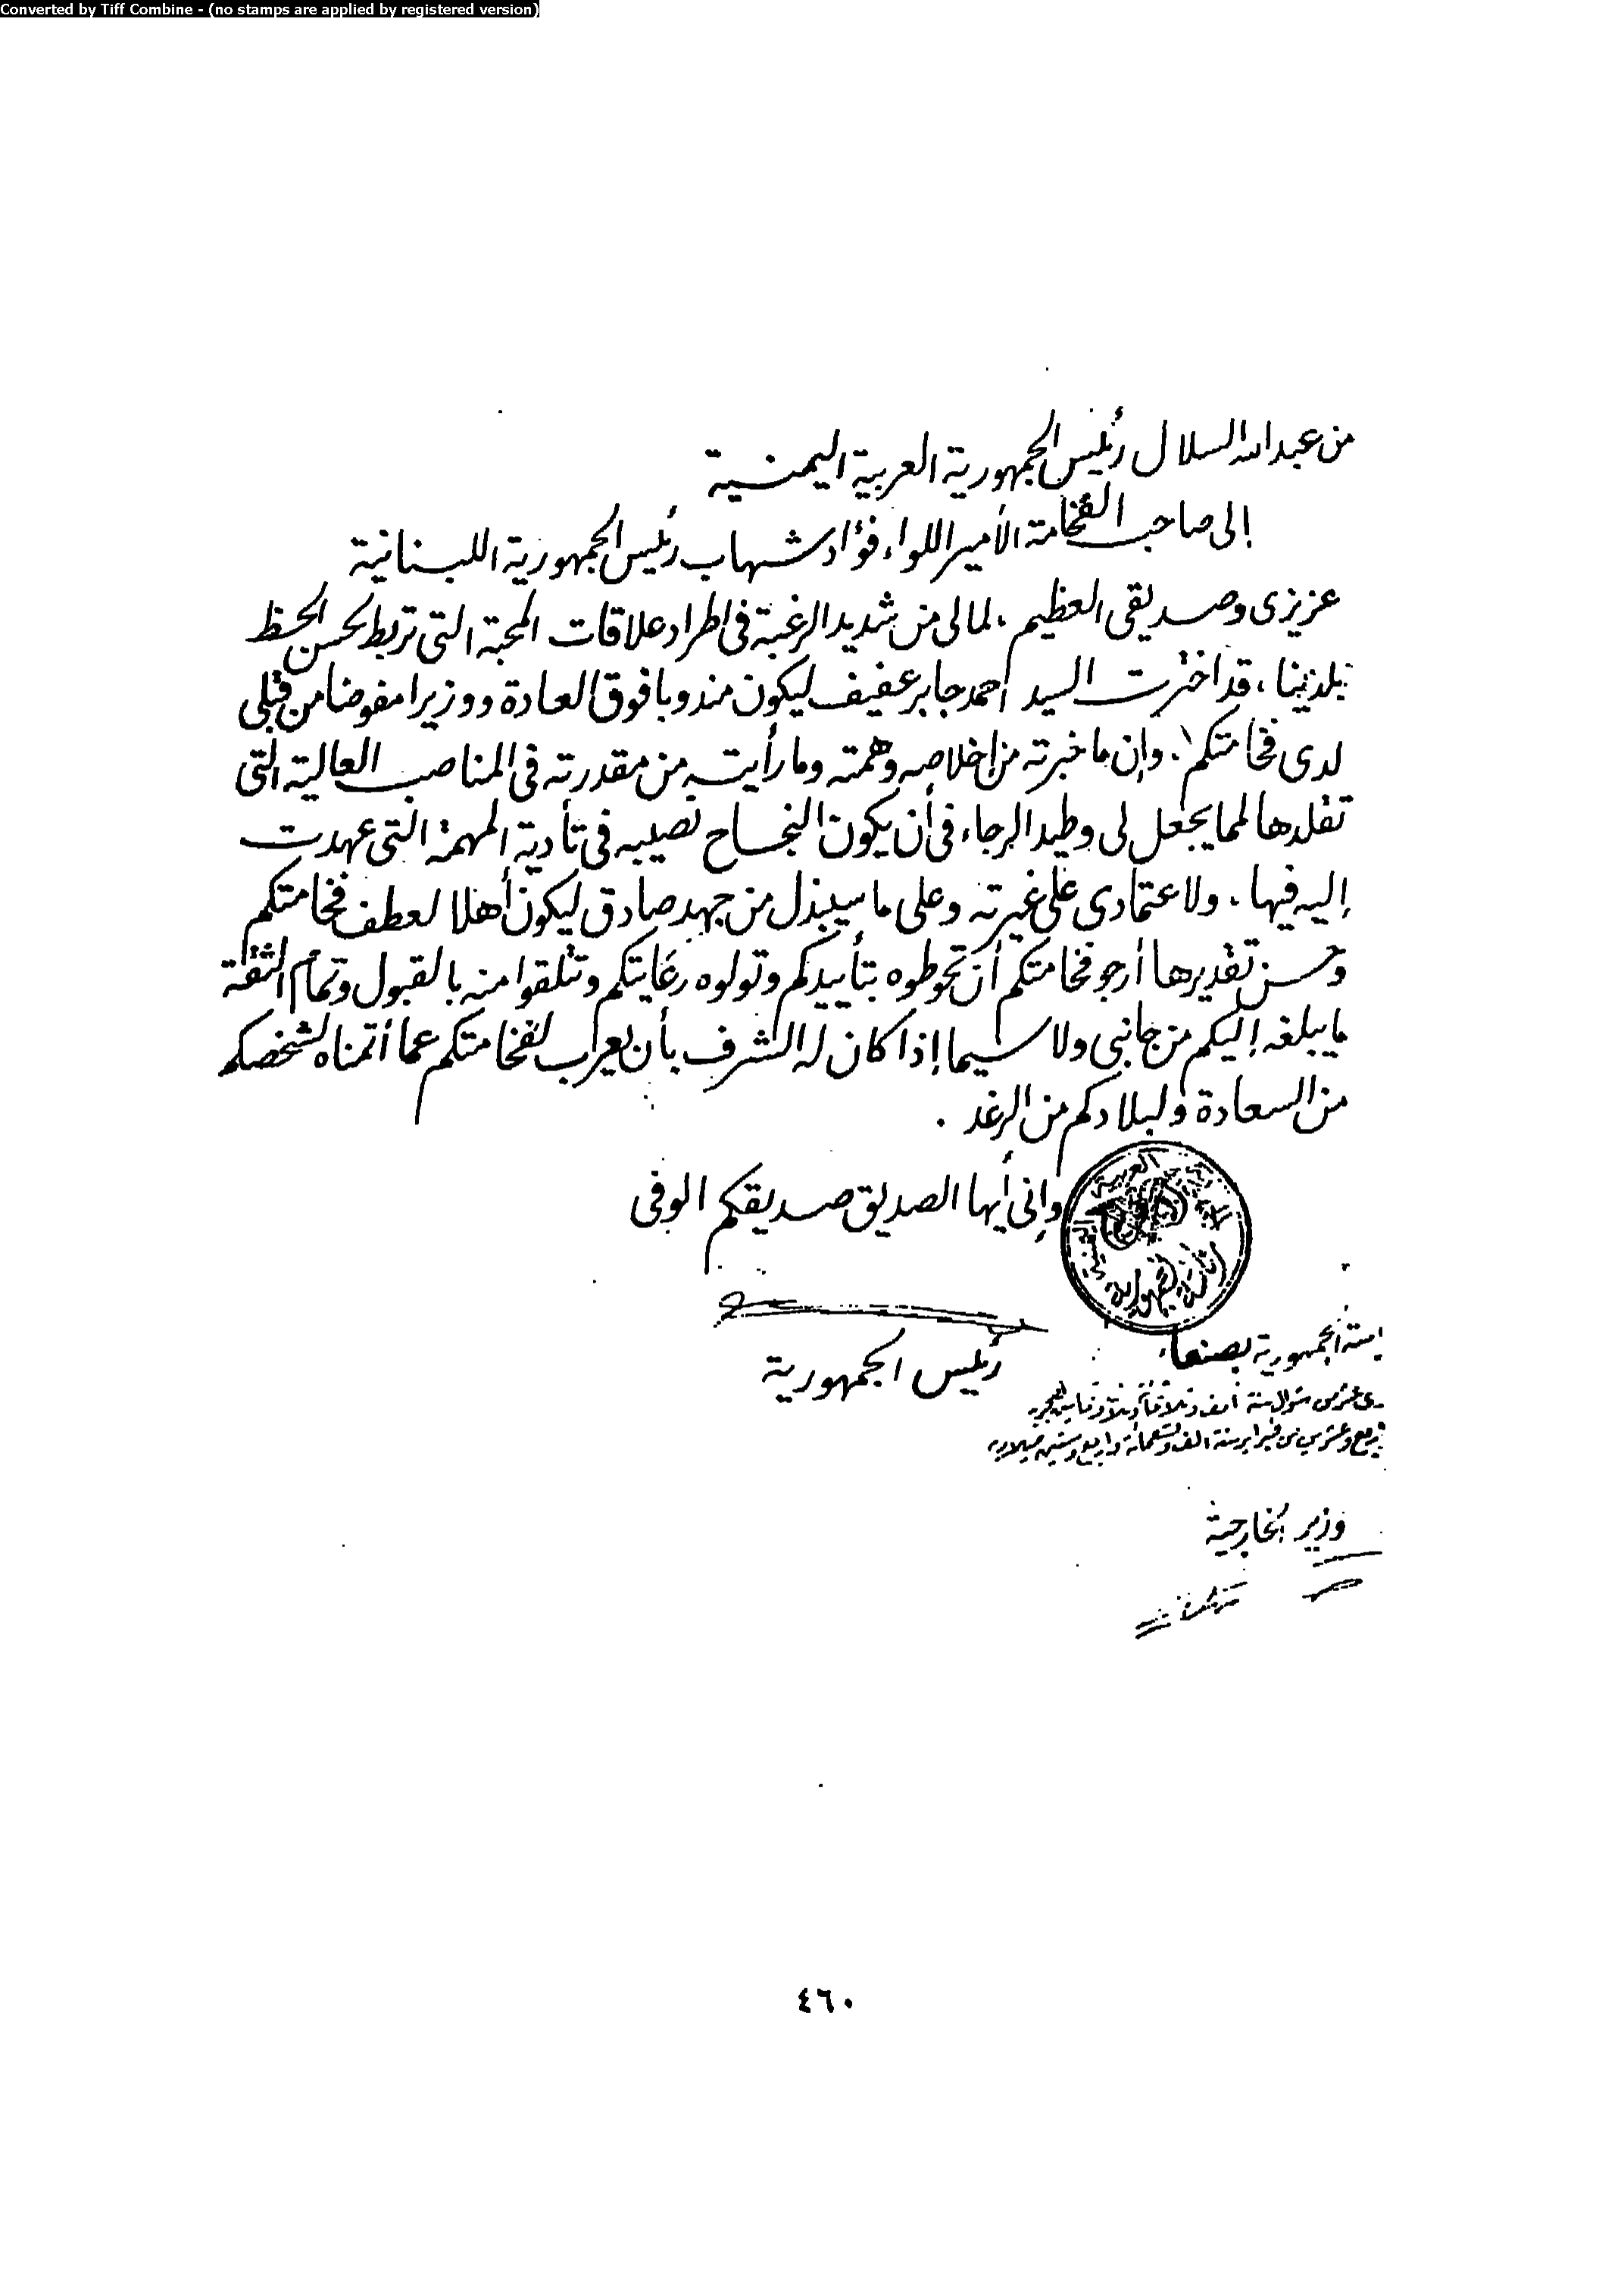 Converted by Tiff Combine - (no stamps are applied by registered version)
من عبدالله السلال رئيس الجمهورية العربية اليمنية
إلى صاحب الفخامة الأمير اللواء فؤاد شهاب رئيس الجمهورية اللبنانية
عزيزى وصديقى العظيم ، لما لى من شديد الرغبة فى اطراد علاقات المحبة التى تربط لحسن الحظ
بلدينا ، قد اخترت السيد أحمد جابر عفيف ليكون مندوبا فوق العادة ووزيرا مفوضا من قبلى
لدى فخامتكم . وإن ما خبرته من إخلاصه وهمته وما رأيته من مقدرته فى المناصب العالية التى
تقلدها لمما يجعل لى وطيد الرجاء فى أن يكون النجاح نصيبه فى تأدية المهمة التى عهدت
إليه فيها . ولاعتمادى على غيرته وعلى ما سيبذل من جهد صادق ليكون أهلا لعطف فخامتكم
وحسن تقديرها أرجو فخامتكم أن تحوطوه بتأييدكم وتولوه رعايتكم وتتلقوا منه بالقبول وتمام الثقة
ما يبلغه إليكم من جانبى ولا سيما إذا كان له الشرف بأن يعرب لفخامتكم عما أتمناه لشخصكم
من السعادة ولبلادكم من الرغد .
وإنى أيها الصديق صديقكم الوفى
رئيس الجمهورية
الجمهورية بصنعاء
شوال سنة ألف وثلاثمائة وثلاث وثمانين هجرية
وعشرين من فبراير سنة الف وتسعمائة واربع وستين ميلادية
وزير الخارجية
٤٦٠